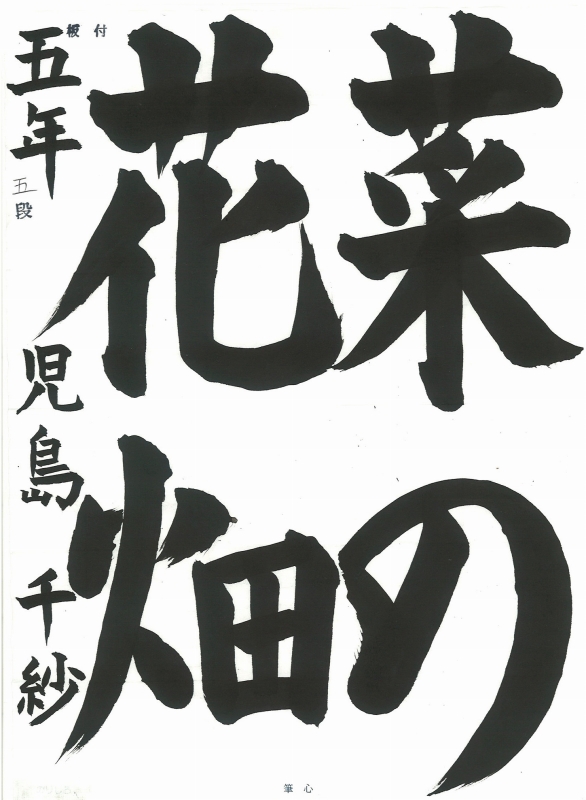 菜の
花畑
付板
五年 五段 児島 千紗
心筆